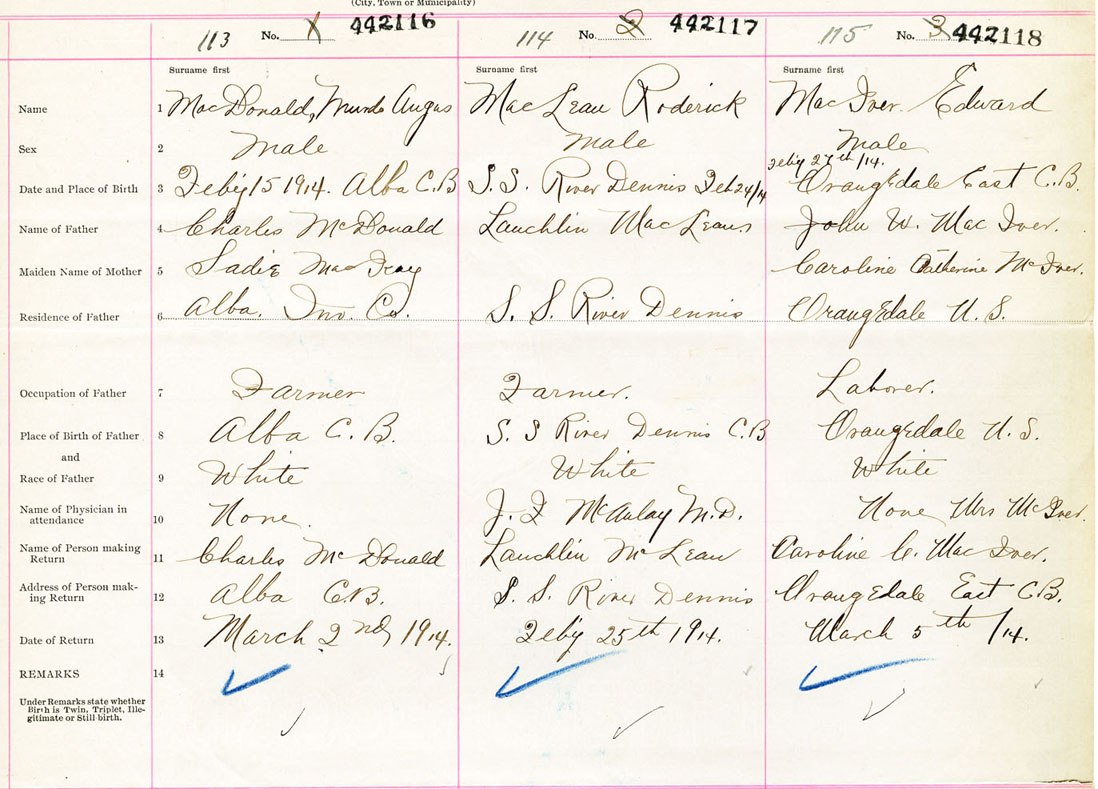 (City, Town or Municipality)
113 No. 1 442116 114 No. 2 442117 115 No. 3 442118
Surname first Surname first Surname first
Name 1 MacDonald, Murdo Angus MacLean Roderick MacIver Edward
Sex 2 Male Male Male
Feb'y 27th/14.
Date and Place of Birth 3 Feb'y 15 1914. Alba C.B S.S. River Dennis Feb 24/14 Orangedale East C.B.
Name of Father 4 Charles McDonald Lauchlin MacLean John W. MacIver.
Maiden Name of Mother 5 Sadie Mac Caroline Catherine McIver.
Residence of Father 6 Alba. Inv. Co. S. S. River Dennis Orangedale N. S.
Occupation of Father 7 Farmer Farmer. Laborer.
Place of Birth of Father 8 Alba C. B. S. S River Dennis C.B Orangedale N. S.
and
Race of Father 9 White White White
Name of Physician in
attendance 10 None. J. F McAulay M.D. None Mrs McIver.
Name of Person making
Return 11 Charles McDonald Lauchlin McLean Caroline C. MacIver.
Address of Person mak-
ing Return 12 Alba C.B. S. S. River Dennis Orangedale East C.B.
Date of Return 13 March 2nd, 1914. Feb'y 25th 1914. March 5th /14.
REMARKS 14
Under Remarks state whether
Birth is Twin, Triplet, Ille-
gitimate or Still birth.